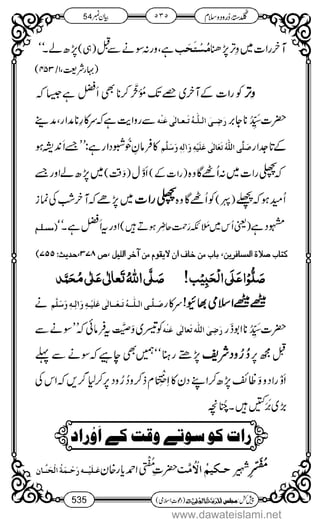 گلدستۂ درود و سلام ۵۳۵ بیان نمبر 54
آخر رات میں وتر پڑھنا مُسْتَحَب ہے، ورنہ سونے سے قبل (ہی) پڑھ لے۔‘‘
(بہارِ شریعت، ۴۵۳/۱)
وتر کو رات کے آخری حصے تک مُؤخَّر کرنا بھی افضل ہے جیسا کہ
حضرت سَیِّدُنا جابر رَضِیَ اللّٰہُ تَعَالٰی عَنْہُ سے روایت ہے کہ سرکارِ نامدار، مدینے
کے تاجدار صَلَّی اللّٰہُ تَعَالٰی عَلَیْہِ وَاٰلِہٖ وَسَلَّم کا فرمانِ خوشبودار ہے: ’’جسے اندیشہ ہو
کہ پچھلی رات میں نہ اُٹھے گا وہ اَوّل (رات کے) (وَقت) میں پڑھ لے اور جسے
اُمید ہو کہ پچھلے (پہر) کو اُٹھے گا وہ پچھلی رات میں پڑھے کہ آخرِ شب کی نماز
مشہود ہے (یعنی اُس میں ملائکۂ رحمت حاضر ہوتے ہیں) اور یہ افضل ہے۔‘‘ (مسلم
کتاب صلاة المسافرین، باب من خاف ان لایقوم من آخر اللیل، ص۳۷۸، حدیث: ۷۵۵)
صَلُّوْا عَلَی الْحَبِیْب! صَلَّی اللّٰہُ تَعَالٰی عَلٰی مُحَمَّد
میٹھے میٹھے اسلامی بھائیو! سرکار صَلَّی اللّٰہُ تَعَالٰی عَلَیْہِ وَاٰلِہٖ وَسَلَّم نے
حضرت سَیِّدُنا ابودَرداء رَضِیَ اللّٰہُ تَعَالٰی عَنْہُ کو تیسری وَصِیَّت یہ فرمائی کہ ’’سونے سے
قبل مجھ پر دُرُودِ شریف پڑھتے رہنا‘‘ ہمیں بھی چاہیے کہ سونے سے پہلے
اَوراد و وظائف پڑھ کر اپنے دن کا اِختتام ذِکر و دُرُود پر کرلیا کریں کہ اس کی
بڑی بَرکتیں ہیں۔ چنانچہ
رات کو سوتے وقت کے اَوْرَاد
مُفَسِّرِ شہیر حکیمُ الْاُمَّت حضرتِ مُفتی احمد یار خان عَلَیْہِ رَحْمَۃُ الْحَنَّان
535
www.dawateislami.net